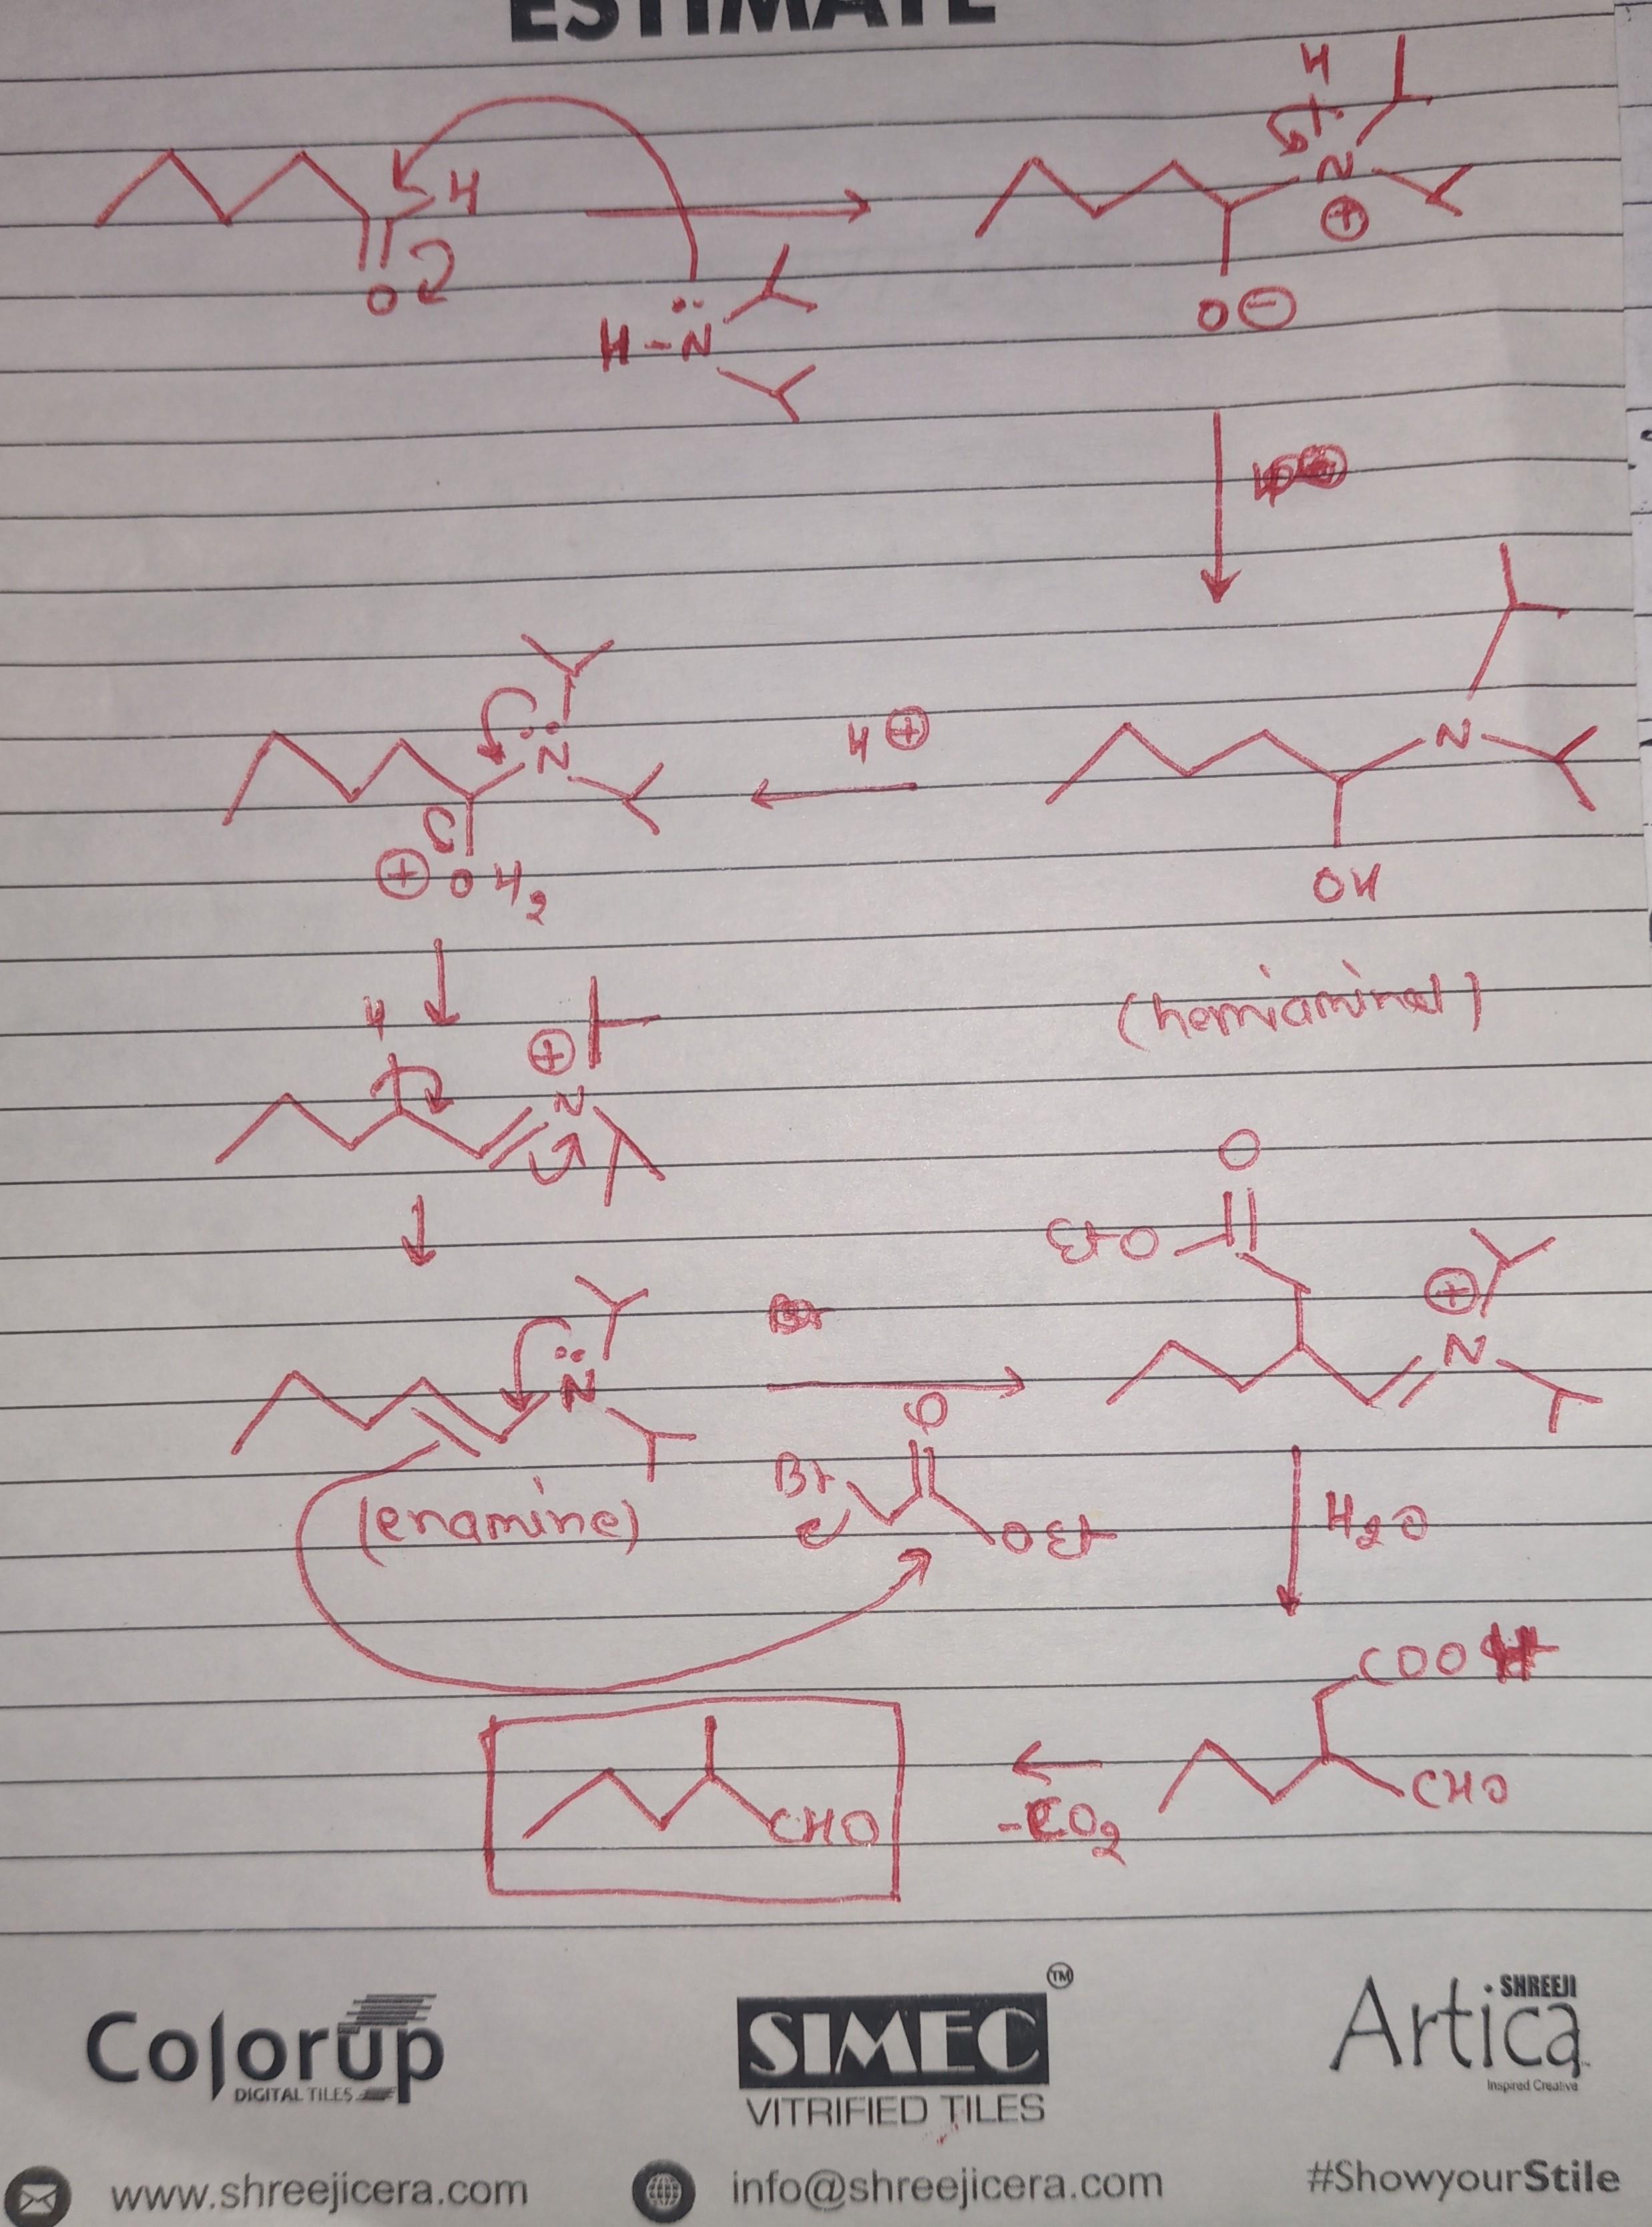 ESTIMATE
H
H
N
⊕
O
H-N̈
O⊖
H⊕
N
N̈
⊕ OH2
OH
(hemiaminal)
H
⊕
N
O
EtO
⊕
N
N̈
O
Br
OEt
(enamine)
H2O
COOH
CHO
CHO
-CO2
Colorup
DIGITAL TILES
SIMEC TM
VITRIFIED TILES
SHREEJI
Artica
Inspired Creative
www.shreejicera.com
info@shreejicera.com
#ShowyourStile